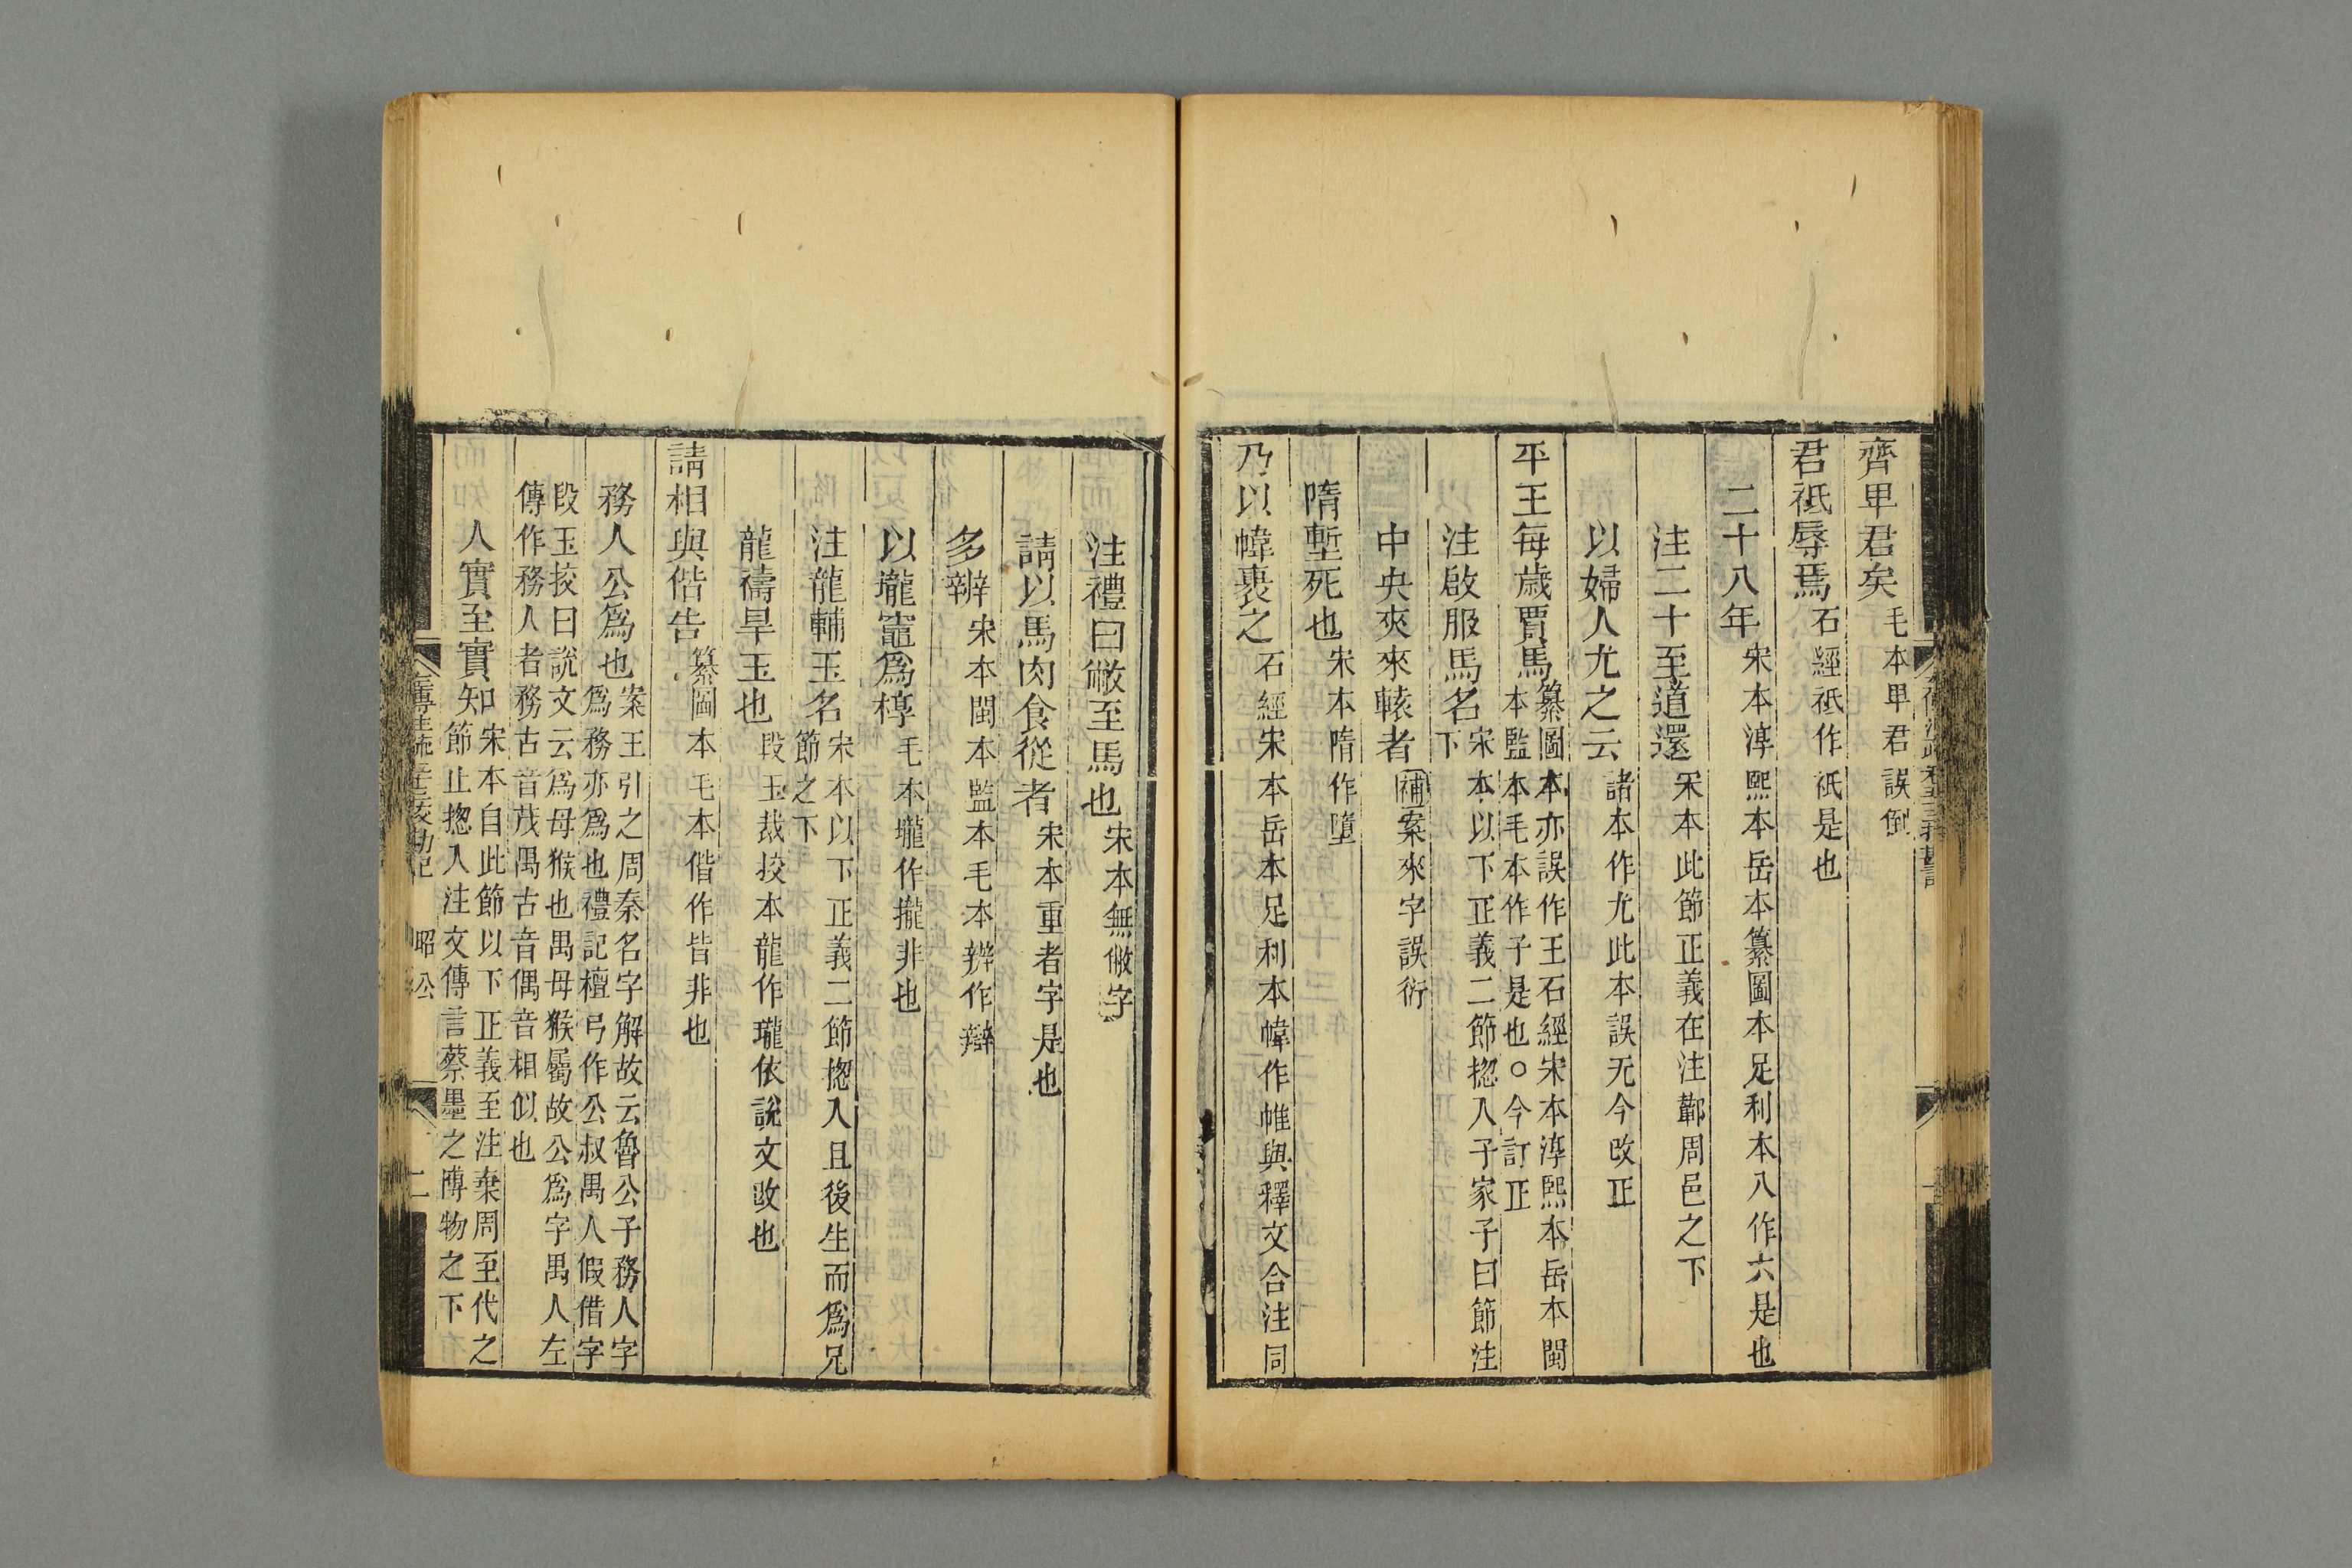 齊卑君矣毛本卑君誤倒
君祇辱焉石經祇作衹是也
二十八年宋本淳熙本岳本纂圖本足利本八作六是也
注二十至道還宋本此節正義在注鄟周邑之下
以婦人尤之云諸本作尤此本誤无今改正
平王每歲賈馬纂圖本亦誤作王石經宋本淳熙本岳本閩
本監本毛本作子是也○今訂正
注啟服馬名宋本以下正義二節揔入子家子曰節注
下
中央夾來轅者補案來字誤衍
隋塹死也宋本隋作墮
乃以幃裹之石經宋本岳本足利本幃作帷與釋文合注同
注禮曰敝至馬也宋本無敝字
請以馬肉食從者宋本重者字是也
多辨宋本閩本監本毛本辨作辯
以壠竈爲椁毛本壠作攏非也
注龍輔玉名宋本以下正義二節揔入且後生而爲兄
節之下
龍禱旱玉也段玉裁挍本龍作瓏依說文改也
請相與偕告纂圖本毛本偕作皆非也
務人公爲也案王引之周秦名字解故云魯公子務人字
爲務亦爲也禮記檀弓作公叔禺人假借字
段玉挍曰說文云爲母猴也禺母猴屬故公爲字禺人左
傳作務人者務古音茂禺古音偶音相似也
人實至實知宋本自此節以下正義至注棄周至代之
節止揔入注文傳言蔡墨之博物之下
昭公
二